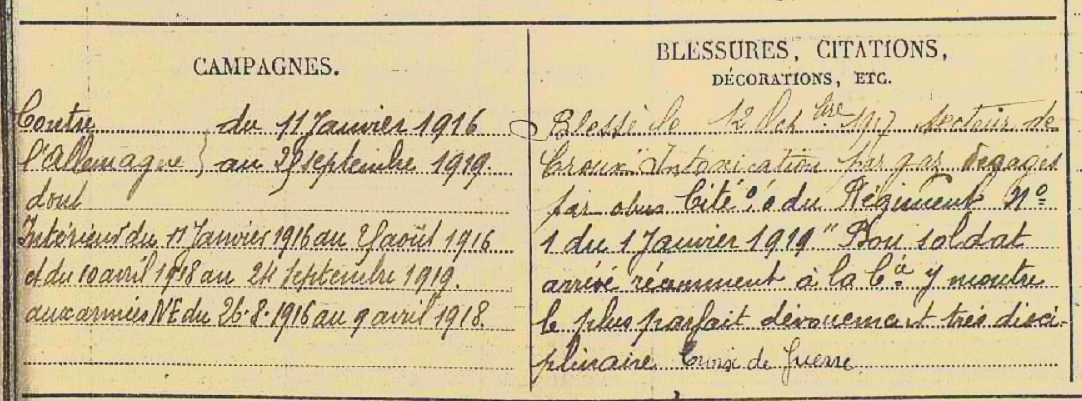 CAMPAGNES.
Contre du 11 Janvier 1916
l'Allemagne } au septembre 1919.
dont
Intérieur du 11 Janvier 1916 au août 1916
et du 10 avril 1918 au 24 septembre 1919.
aux armées NE du 26-8-1916 au 9 avril 1918.
BLESSURES, CITATIONS,
DÉCORATIONS, ETC.
Blessé le 12 Octbre 1917 secteur de
"Intoxication par gaz dégagés
par obus Cité o/ du Régiment No
1 du 1 Janvier 1919 "Bon soldat
arrivé récemment à la Cie y montre
le plus parfait dévouement très disci-
plinaire Croix de Guerre